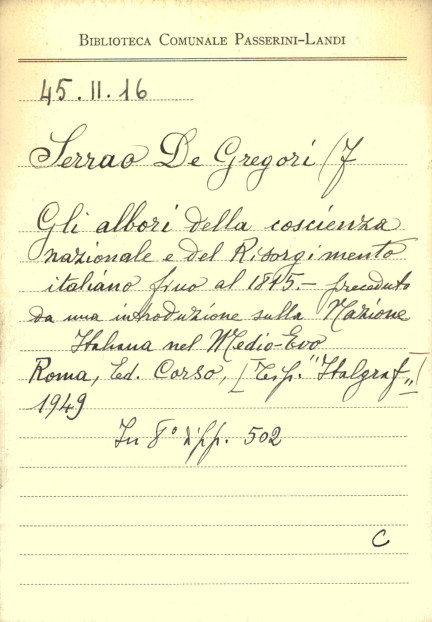 BIBLIOTECA COMUNALE PASSERINI-LANDI
45.II.16
Serrao De Gregori /J
Gli albori della coscienza
nazionale e del Risorgimento
italiano fino al 1815.— preceduto
da una introduzione sulla Nazione
Italiana nel Medio-Evo
Roma, Ed. Corso, [Tip. "Italgraf"]
1949
In 8° pp. 502
C